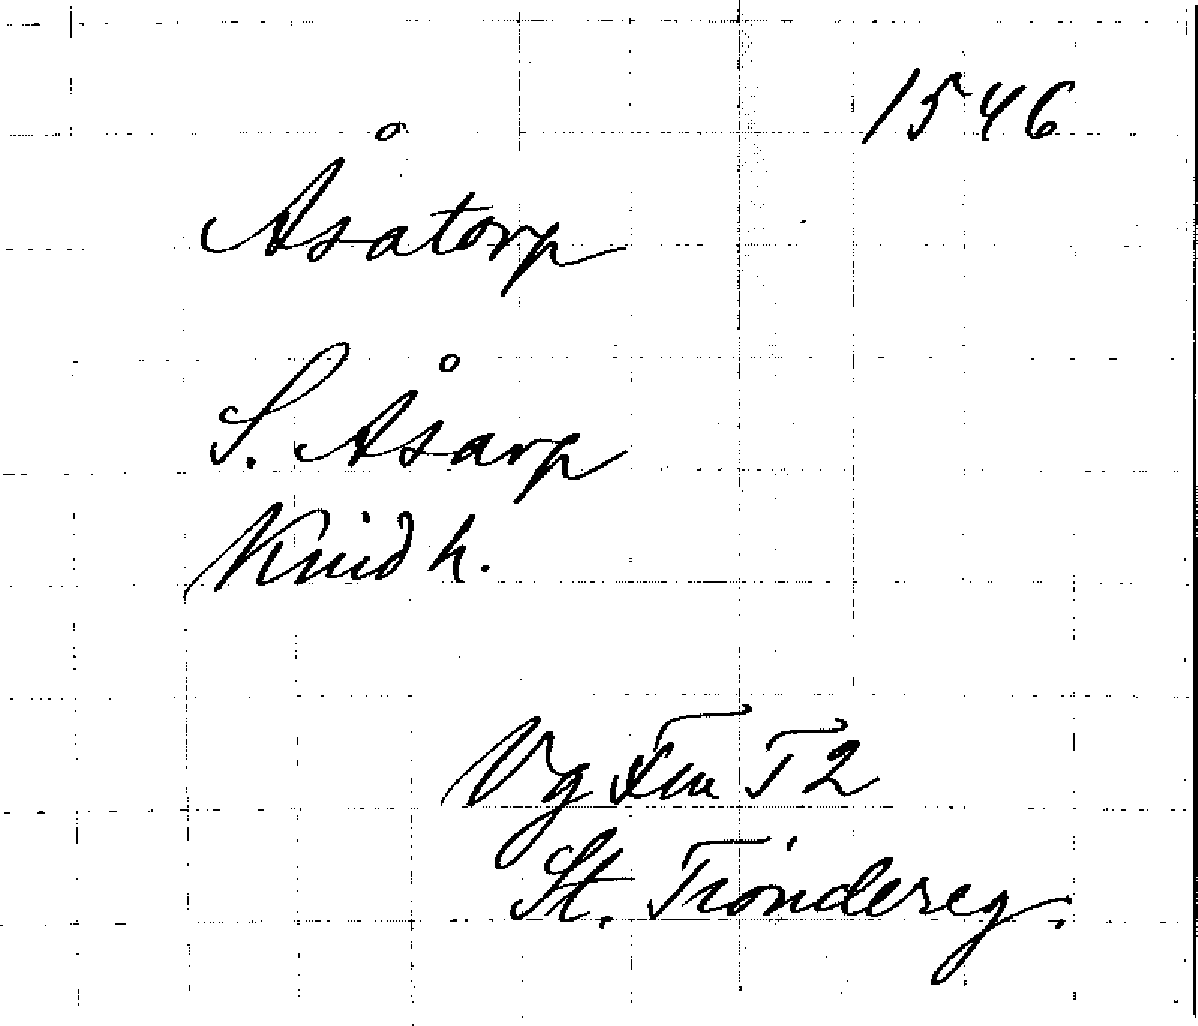 1546
Åsatorp
S. Åsarp
Knid h.
Vg T2
St. Tiondereg.